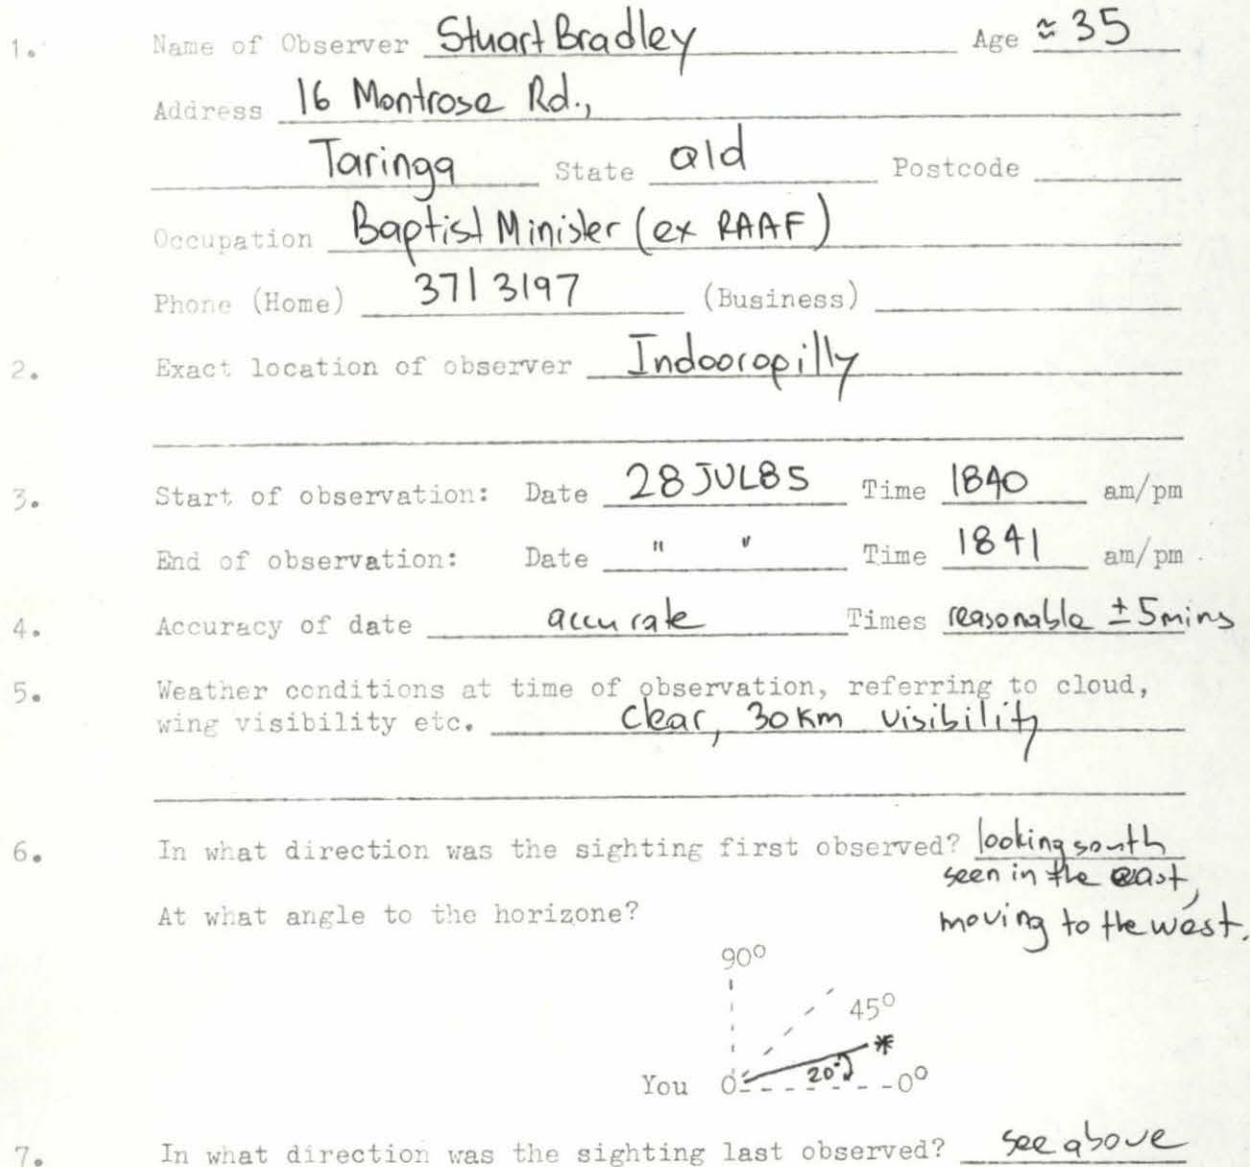 1. Name of Observer Stuart Bradley Age ≈ 35
Address 16 Montrose Rd.,
Taringa State Qld Postcode
Occupation Baptist Minister (ex RAAF)
Phone (Home) 371 3197 (Business)
2. Exact location of observer Indooropilly
3. Start of observation: Date 28 JUL85 Time 1840 am/pm
End of observation: Date " " Time 1841 am/pm
4. Accuracy of date accurate Times reasonable ±5mins
5. Weather conditions at time of observation, referring to cloud,
wing visibility etc. clear, 30km visibility
6. In what direction was the sighting first observed? looking south
seen in the east,
At what angle to the horizone? moving to the west.
90°
45°
20°
You 0 0°
7. In what direction was the sighting last observed? see above